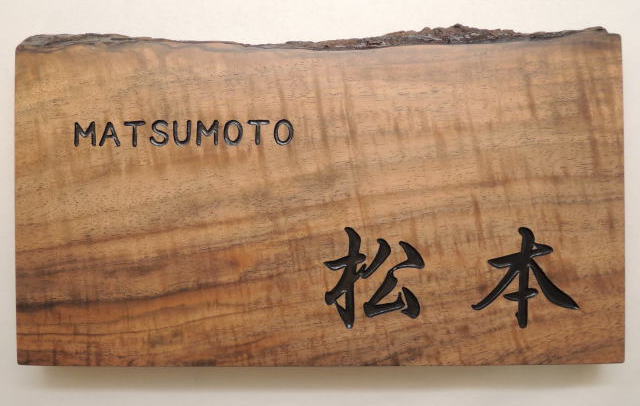 MATSUMOTO
松本